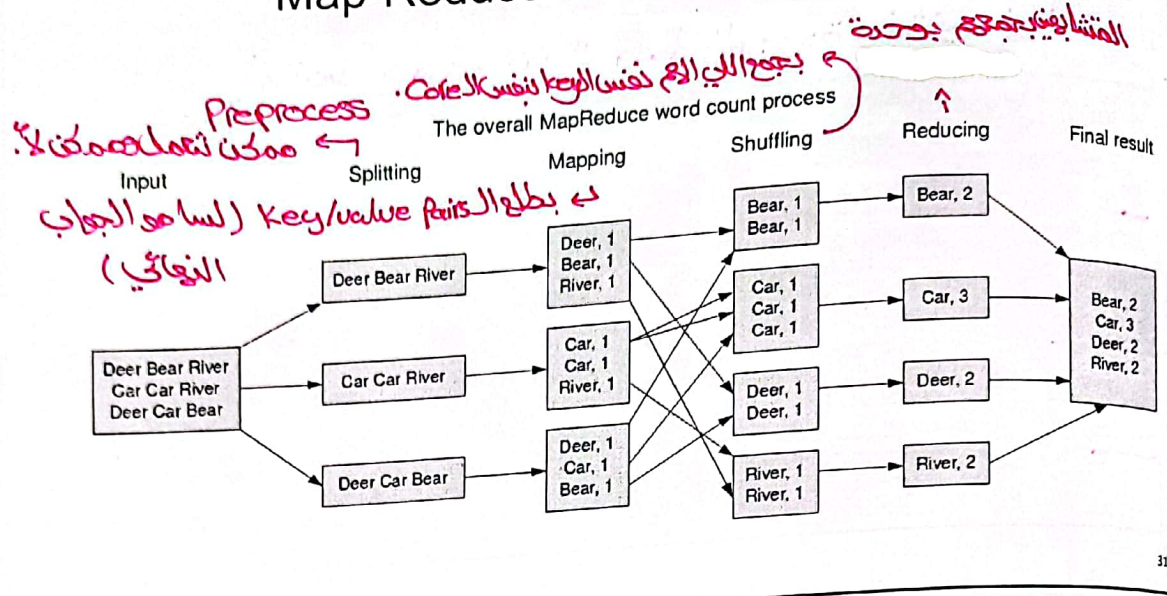 Map Reduce
المتشابهين بجمعهم بوحدة
بجمع اللي الهم نفس الkey لنفس الCore.
Preprocess
ممكن تنعمل وممكن لأ.
The overall MapReduce word count process
Input
Splitting
Mapping
Shuffling
Reducing
Final result
بطلع الـ Key/value pairs (لسا مو الجواب
النهائي)
Deer Bear River
Car Car River
Deer Car Bear
Deer Bear River
Car Car River
Deer Car Bear
Deer, 1
Bear, 1
River, 1
Car, 1
Car, 1
River, 1
Deer, 1
Car, 1
Bear, 1
Bear, 1
Bear, 1
Car, 1
Car, 1
Car, 1
Deer, 1
Deer, 1
River, 1
River, 1
Bear, 2
Car, 3
Deer, 2
River, 2
Bear, 2
Car, 3
Deer, 2
River, 2
31